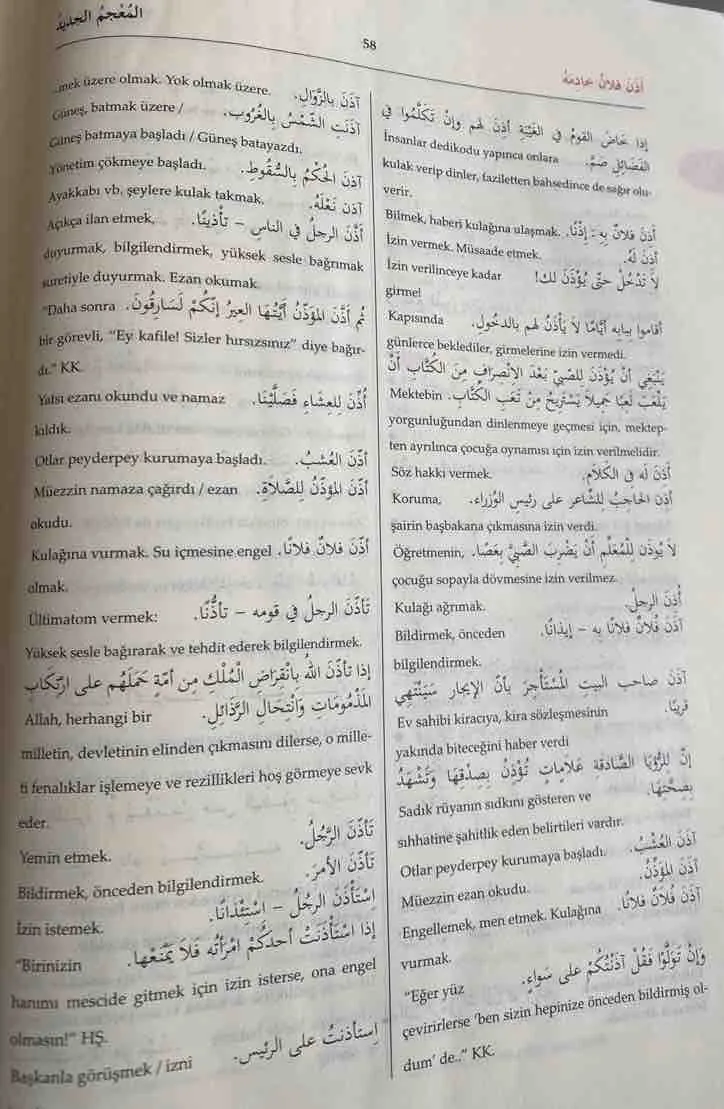 المُعْجَمُ الجَدِيدُ
58
أذن فلانٌ خادِمَهُ
إذا خَاضَ القومُ في الغَيْبَةِ أَذِنَ لهم وإنْ تَكَلَّمُوا في
الفَضَائِلِ صَمَّ. İnsanlar dedikodu yapınca onlara
kulak verip dinler, faziletten bahsedince de sağır olu-
verir.
أَذِنَ فلانٌ بِهِ - إِذْنًا. Bilmek, haberi kulağına ulaşmak.
أَذِنَ لَهُ. İzin vermek. Müsaade etmek.
لاَ تَدْخُلْ حتَّى يُؤْذَنَ لك! İzin verilinceye kadar
girme!
أقاموا ببابِهِ أيَّامًا لاَ يَأْذَنُ لهم بالدخُولِ. Kapısında
günlerce beklediler, girmelerine izin vermedi.
يَنْبَغِي أنْ يُؤْذَنَ للصَّبيِّ بَعْدَ الانْصِرَافِ مِنَ الكُتَّابِ أنْ
يَلْعَبَ لَعِبًا جَمِيلاً يَسْتَرِيحُ مِنْ تَعَبِ الكُتَّابِ. Mektebin
yorgunluğundan dinlenmeye geçmesi için, mektep-
ten ayrılınca çocuğa oynaması için izin verilmelidir.
أَذِنَ لَهُ في الكَلاَمِ. Söz hakkı vermek.
أَذِنَ الحَاجِبُ للشَّاعرِ على رئيسِ الوُزَراءِ. Koruma,
şairin başbakana çıkmasına izin verdi.
لاَ يُؤذَن لِلْمُعَلِّمِ أنْ يَضْرِبَ الصَّبِيَّ بِعَصًا. Öğretmenin,
çocuğu sopayla dövmesine izin verilmez.
أُذِنَ الرجلُ. Kulağı ağrımak.
آذَنَ فُلانٌ فُلانًا بِهِ - إيذانًا. Bildirmek, önceden
bilgilendirmek.
آذَنَ صاحب البيتِ المُسْتَأْجِرَ بأنَّ الإيجار سَيَنْتَهِي
قَرِيبًا. Ev sahibi kiracıya, kira sözleşmesinin
yakında biteceğini haber verdi
إنَّ للرُّؤيَا الصَّادقةِ عَلاَماتٍ تُؤْذِنُ بِصِدْقِهَا وتَشْهَدُ
بِصِحَّتِهَا. Sadık rüyanın sıdkını gösteren ve
sıhhatine şahitlik eden belirtileri vardır.
آذَنَ العُشْبُ. Otlar peyderpey kurumaya başladı.
آذَنَ المُؤَذِّنُ. Müezzin ezan okudu.
آذَنَ فُلاَنٌ فُلانًا. Engellemek, men etmek. Kulağına
vurmak.
وَإِنْ تَوَلَّوْا فَقُلْ آذَنْتُكُمْ على سَواءٍ. “Eğer yüz
çevirirlerse ‘ben sizin hepinize önceden bildirmiş ol-
dum’ de..” KK.
آذَنَ بالزَّوَالِ. ..mek üzere olmak. Yok olmak üzere.
آذَنَتِ الشَّمْسُ بالغُرُوبِ. Güneş, batmak üzere /
Güneş batmaya başladı / Güneş batayazdı.
آذَنَ الحُكْمُ بالسُّقُوطِ. Yönetim çökmeye başladı.
آذَنَ نَعْلَهُ. Ayakkabı vb, şeylere kulak takmak.
أَذَّنَ الرجلُ في الناسِ - تَأْذِينًا. Açıkça ilan etmek,
duyurmak, bilgilendirmek, yüksek sesle bağırmak
suretiyle duyurmak. Ezan okumak.
ثُم أَذَّنَ المُؤَذِّنُ أيَّتُهَا العِيرُ إنَّكُمْ لَسَارِقُونَ. “Daha sonra
bir görevli, “Ey kafile! Sizler hırsızsınız” diye bağır-
dı.” KK.
أُذِّنَ للعِشَاءِ فَصَلَّيْنَا. Yatsı ezanı okundu ve namaz
kıldık.
أَذَّنَ العُشْبُ. Otlar peyderpey kurumaya başladı.
أَذَّنَ المُؤَذِّنُ لِلصَّلاَةِ. Müezzin namaza çağırdı / ezan
okudu.
أَذَّنَ فلانٌ فلانًا. Kulağına vurmak. Su içmesine engel
olmak.
تَأَذَّنَ الرجلُ في قومه - تأذُّنًا. Ültimatom vermek:
Yüksek sesle bağırarak ve tehdit ederek bilgilendirmek.
إذا تَأَذَّنَ اللهُ بانْقِرَاضِ الْمُلْكِ من أمّةٍ حَمَلَهُم على ارْتِكابِ
المَذْمُومَاتِ وَانْتِحَالِ الرَّذَائِلِ. Allah, herhangi bir
milletin, devletinin elinden çıkmasını dilerse, o mille-
ti fenalıklar işlemeye ve rezillikleri hoş görmeye sevk
eder.
تَأَذَّنَ الرَّجُلُ. Yemin etmek.
تَأَذَّنَ الأَمرَ. Bildirmek, önceden bilgilendirmek.
اسْتَأْذَنَ الرَّجلُ - اسْتِئْذَانًا. İzin istemek.
إذا اسْتَأْذَنَتْ أحدَكُمْ امْرَأَتُه فَلاَ يَمْنَعْهَا. “Birinizin
hanımı mescide gitmek için izin isterse, ona engel
olmasın!” HŞ.
إستأذنتُ على الرئيسِ. Başkanla görüşmek / izni